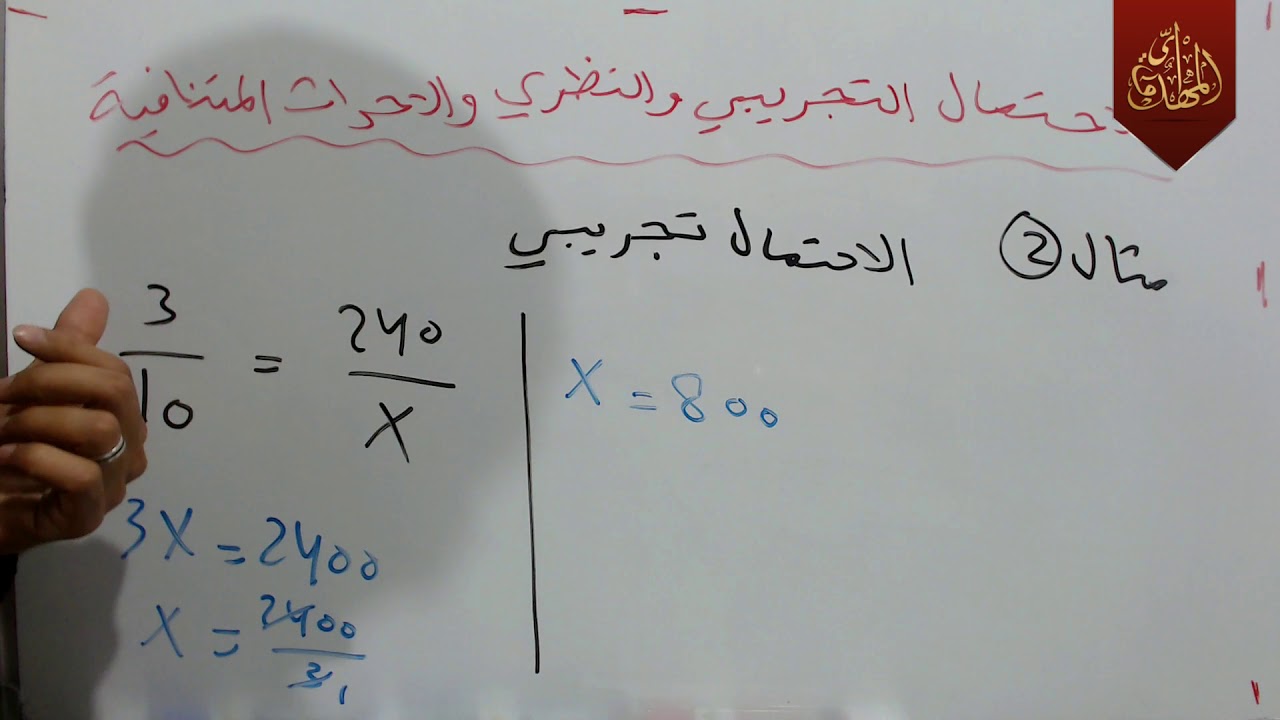 الاحتمال التجريبي والنظري والاحداث المتنافية
مثال 2 الاحتمال تجريبي
3/10 = 240/X
3X = 2400
X = 2400/3 1
X = 800